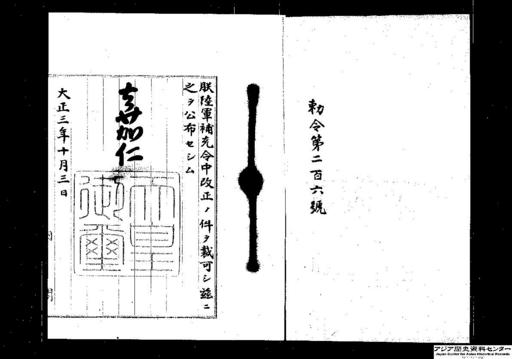 勅令第二百六號
朕陸軍補充令中改正ノ件ヲ裁可シ茲ニ
之ヲ公布セシム
嘉仁
天皇
御璽
大正三年十月三日
アジア歴史資料センター
Japan Center for Asian Historical Records